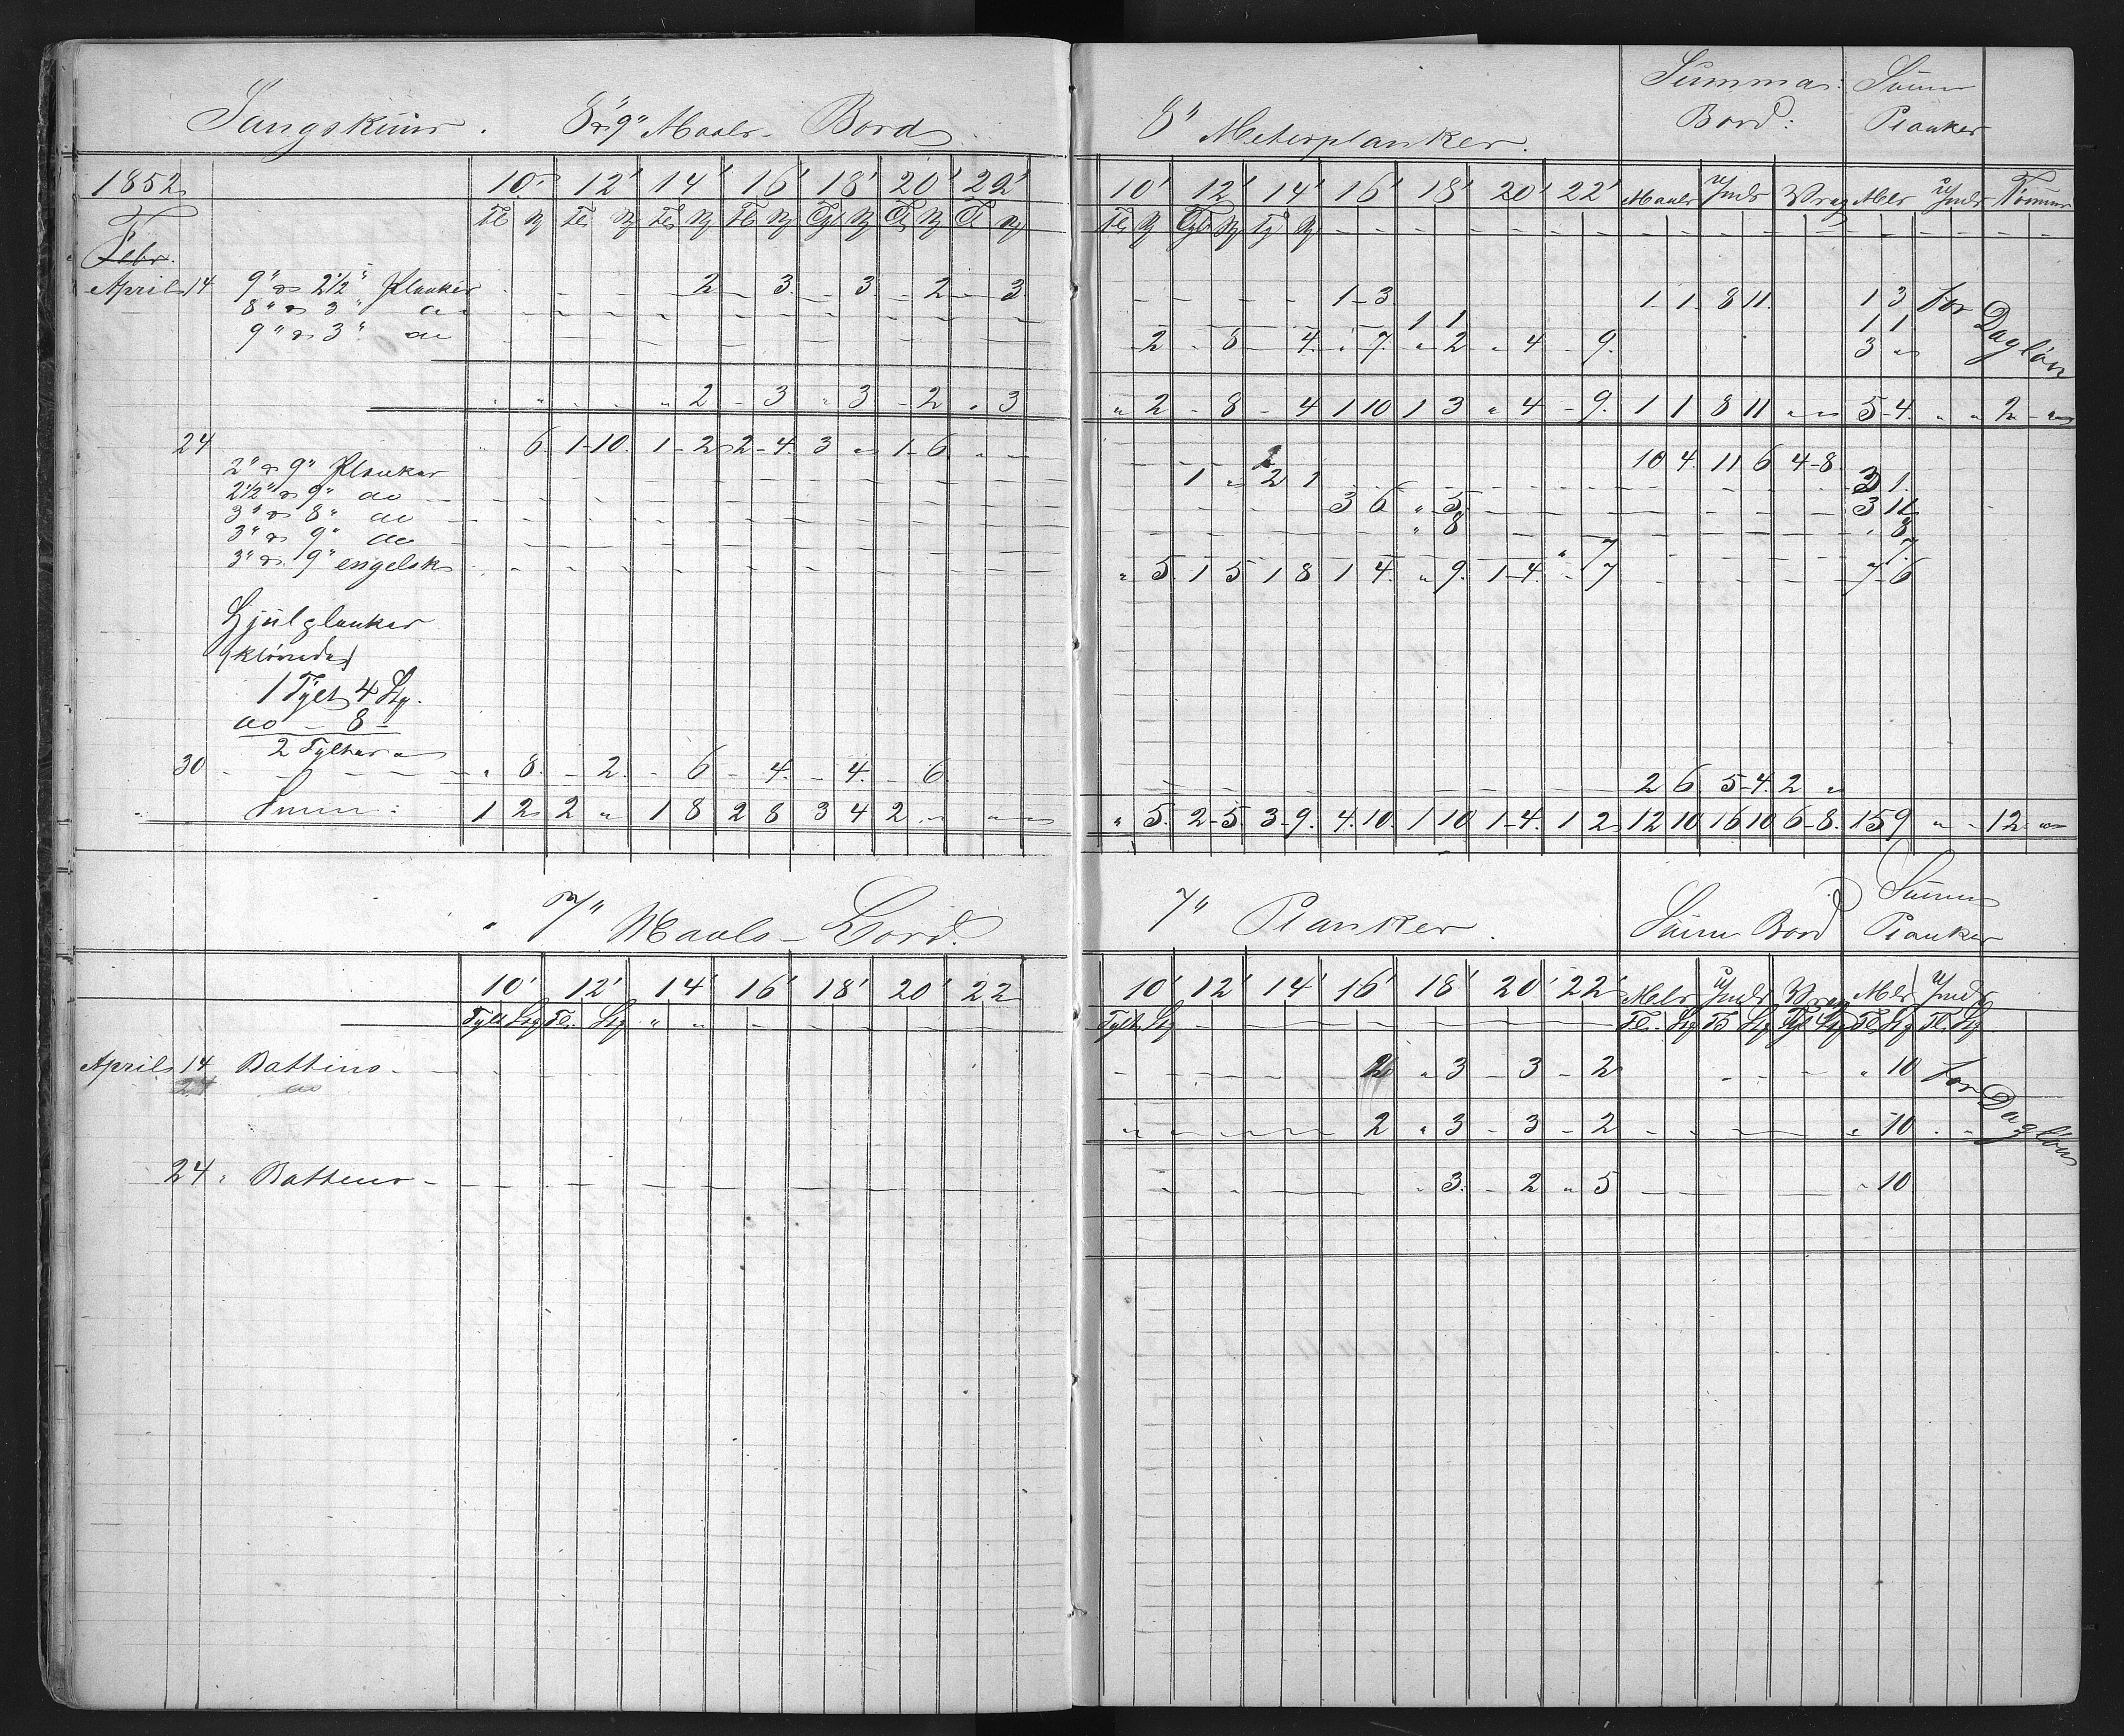 8" & 9" Maals- Bord
8" Meterplanker.
Summa: Bord:
Summ Planker
1852
10' 12' 14' 16' 18' 20' 22'
10' 12' 14' 16' 18' 20' 22' Maals Undr Vrag Mls Undr Tømmer
Febr.
April 14 9" & 2½" Planker - - - 2 - 3 - 3 - 2 - 3 - - - - 1-3 1 1 8 11 1 3 For Dagløn
8" & 3" do 1 1 1 1
9" & 3" do 2 " 8 - 4 " 7 " 2 " 4 - 9. 3 "
" " - - " 2 - 3 " 3 - 2 " 3 " 2 - 8 - 4 1 10 1 3 " 4 - 9. 1 1 8 11 " " 5-4. " " 2 - "
24 " 6 1-10. 1-2 2-4. 3 " 1-6 " - 10 4. 11 6 4-8
2" & 9" Planker 1 " 2 1 3 1.
2½" & 9" do 3 6 " 5 3 11
3" & 8" do " 8 " 8
3" & 9" do " 7 7
3" & 9" engelsk " 5. 1 5 1 8 1 4. " 9. 1-4. - 7 7-6
Hjulplanker
(kløvede)
1 Tylt 4 Stg.
do - 8 -
2 Tylter "
30 " 8. - 2. - 6 - 4. - 4. - 6 2 6. 5-4. 2 "
Summ: 1 2 2 " 1 8 2 8 3 4 2 " " " " 5. 2-5. 3-9. 4.10. 1 10 1-4. 1 2 12 10 16 10 6-8. 15 9 " - 12. "
7" Maals- Bord.
7" Planker.
Summ Bord
Summ Planker
10' 12' 14' 16' 18' 20' 22
10' 12' 14' 16' 18' 20' 22' Mls Undr Vrag Mls Undr
Tylt Stg Tl. Stg " " - - - Tylt Stg - - - Tl. Stg Tl Stg Tyl Stg Tl Stg Tl. Stg
April 14 Battins - 2 " 3 - 3 - 2 " 10 For Dagløn
24 do
2 " 3 - 3 - 2 " 10
24 " Battens - " 3. - 2 " 5 " 10